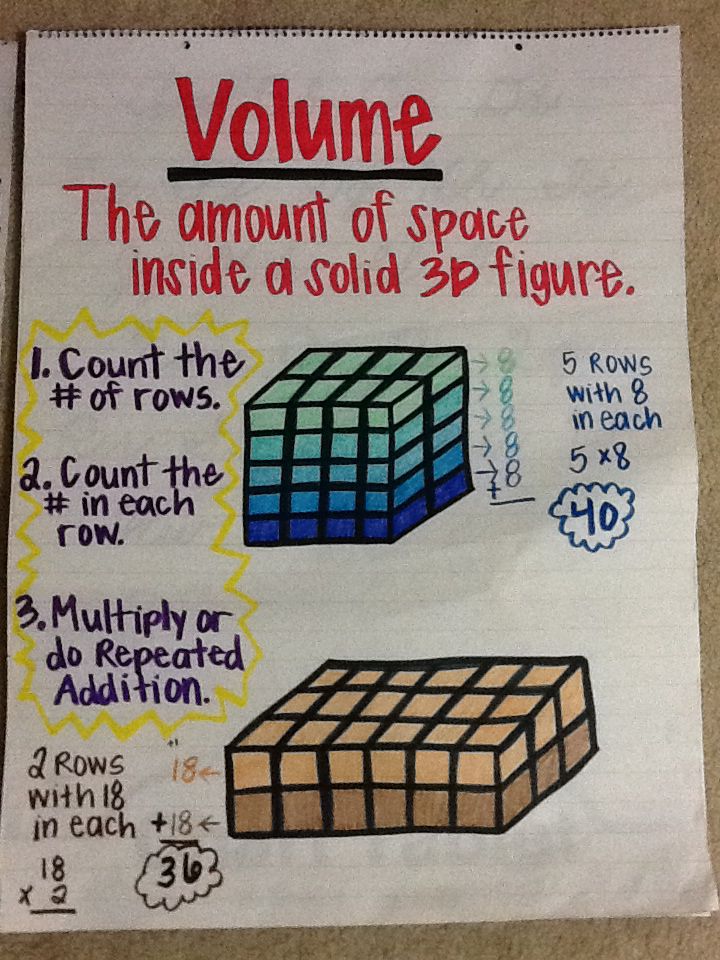 Volume
The amount of space
inside a solid 3D figure.
1. Count the
# of rows.
2. Count the
# in each
row.
3. Multiply or
do Repeated
Addition.
→ 8
→ 8
→ 8
→ 8
→ 8
+
5 Rows
with 8
in each
5 x 8
40
2 Rows
with 18
in each
18
x 2
18←
+18←
36